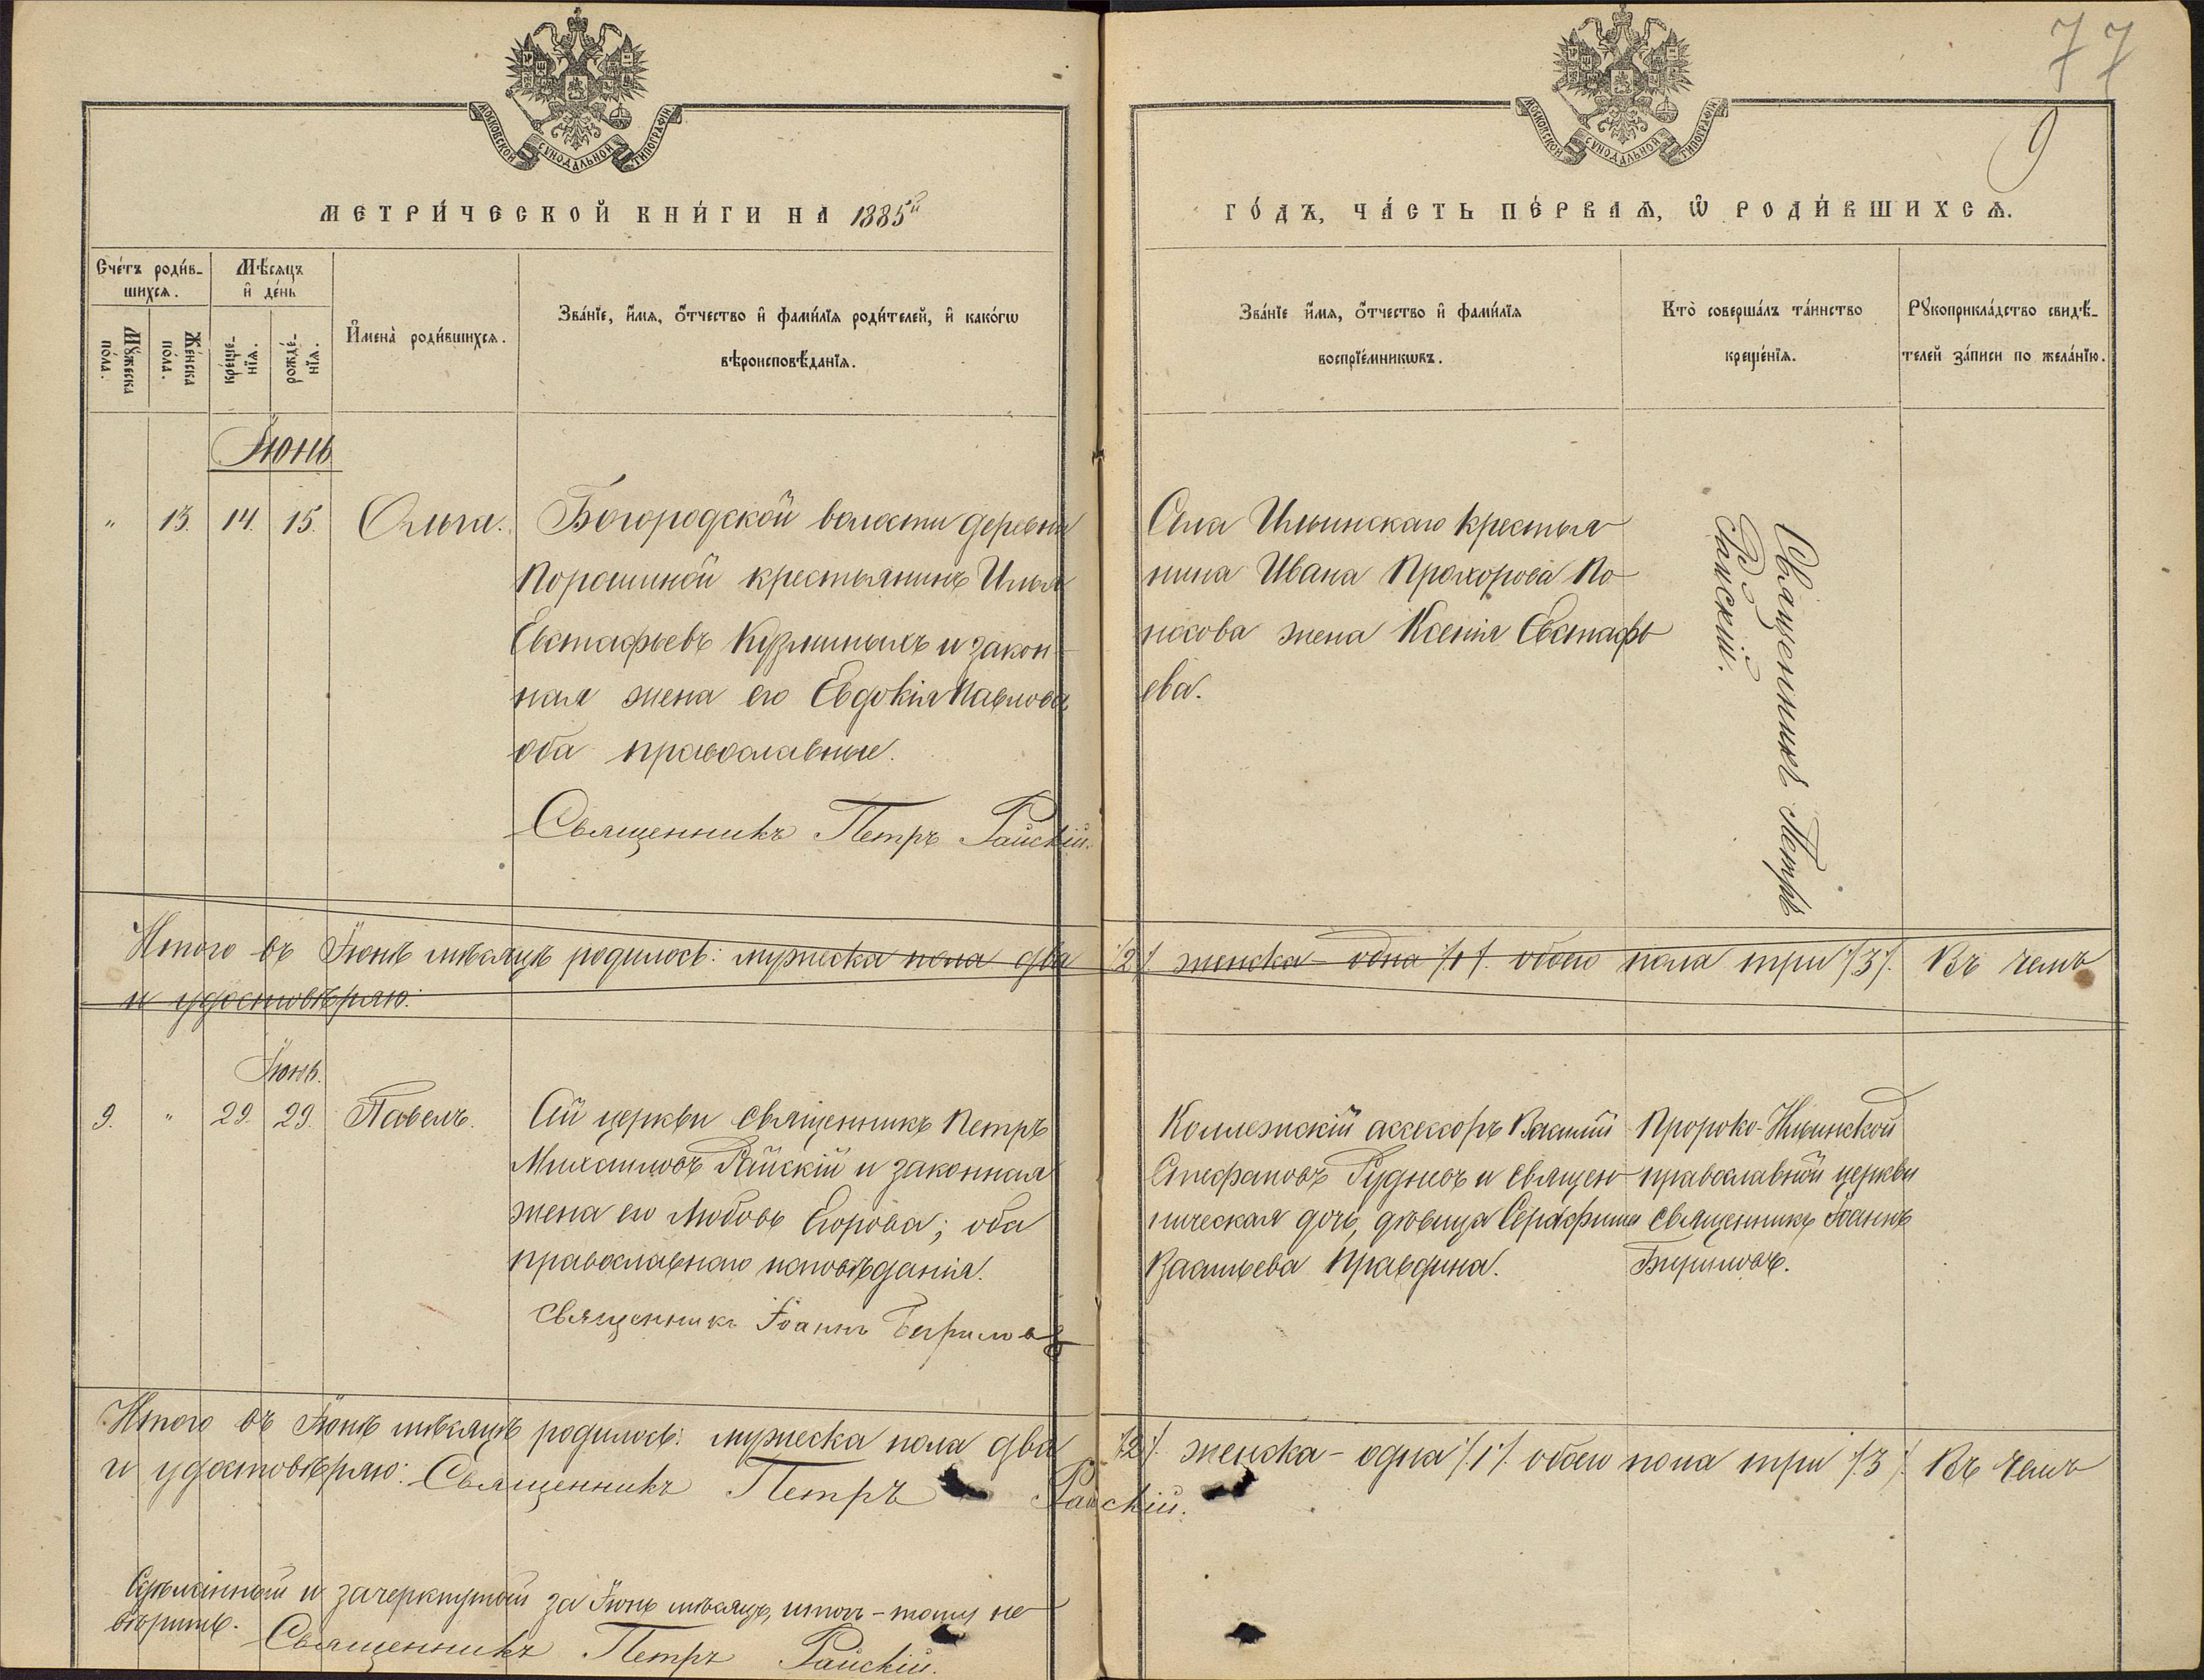 77
9
МОСКОВСКОЙ СѴНОДАЛЬНОЙ ТИПОГРАФІИ
МОСКОВСКОЙ СѴНОДАЛЬНОЙ ТИПОГРАФІИ
МЕТРИ́ЧЕСКОЙ КНИ́ГИ НА 1885й
ГО́ДЪ, ЧА́СТЬ ПЕ́РВАѦ, Ѡ҆ РОДИ́ВШИХСѦ.
Сче́тъ роди́в-
шихсѧ.
Мѣ́сѧцъ
и҆ де́нь
Мꙋ́жеска
по́ла.
Же́нска
по́ла.
рожде-
нїѧ.
креще-
нїѧ.
И҆мена̀ роди́вшихсѧ.
Зва́нїе, и҆́мѧ, ѻ҆́тчество и҆ фами́лїѧ роди́телей, и҆ како́гѡ
вѣроисповѣ́данїѧ.
Зва́нїе и҆́мѧ, ѻ҆́тчество и҆ фами́лїѧ
воспрїе́мникѡвъ.
Кто̀ соверша́лъ та́инство
креще́нїѧ.
Рꙋкоприкла́дство свидѣ́-
телей за́писи по жела́нїю.
Іюнь
" 13. 14. 15. Ольга.
Богородской волости деревни
Порошиной крестьянинъ Илья
Евстафьевъ Кузминыхъ и закон-
ная жена его Евдокія Павлова
оба православные.
Священникъ Петръ Райскій.
Села Ильинскаго крестья-
нина Ивана Прохорова По-
носова жена Ксенія Евстафь-
ева.
Священникъ Петръ
Райскій.
Итого въ Іюнѣ мѣсяцѣ родилось: мужеска пола два /2/. женска - одна /1/. обоего пола три /3/. Въ чемъ
и удостовѣряю:
Іюнь.
9. " 29. 29. Павелъ.
Сей церкви священникъ Петръ
Михаиловъ Райскій и законная
жена его Любовь Егорова; оба
православнаго исповѣданія.
Священникъ Іоаннъ Бириловъ
Коллежскій ассессоръ Василій
Стефановъ Рудневъ и священ-
ническая дочь, дѣвица Серафима
Васильева Правдина.
Пророко-Ильинской
православной церкви
священникъ Іоаннъ
Бириловъ.
Итого въ Іюнѣ мѣсяцѣ родилось: мужеска пола два /2/. женска - одна /1/. обоего пола три /3/. Въ чемъ
и удостовѣряю: Священникъ Петръ Райскій.
Сдѣланный и зачеркнутый за Іюнь мѣсяцъ, итогъ - тому не
вѣрить. Священникъ Петръ Райскій.